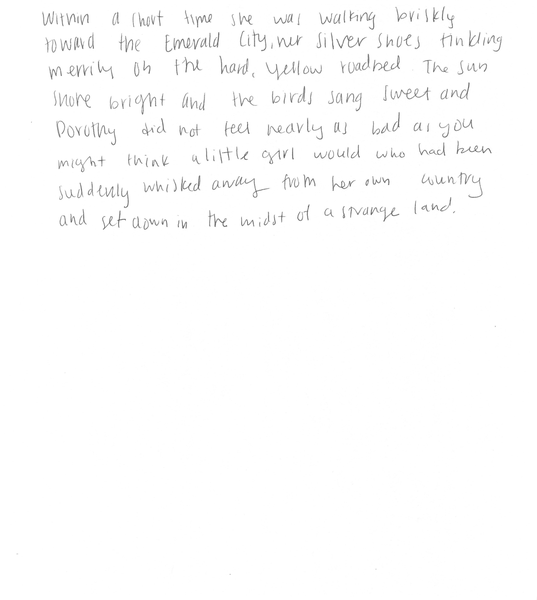 Within a short time she was walking briskly
toward the Emerald City, her Silver Shoes tinkling
merrily on the hard, yellow roadbed. The sun
shone bright and the birds sang sweet and
Dorothy did not feel nearly as bad as you
might think a little girl would who had been
suddenly whisked away from her own country
and set down in the midst of a strange land.